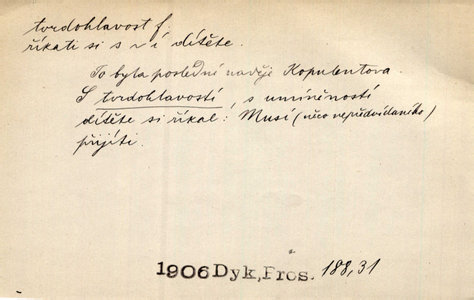 tvrdohlavost f
říkati si s ~í dítěte.
To byla poslední naděje Kopulentova.
S tvrdohlavostí, s umíněností
dítěte si říkal: Musí (něco nepředvídaného)
přijíti.
1906 Dyk, Pros. 188,31